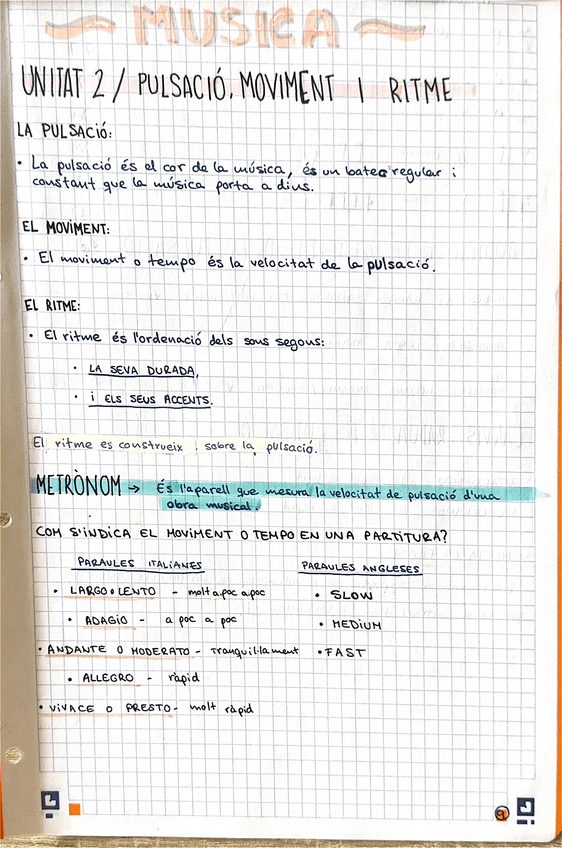 MUSICA
UNITAT 2 / PULSACIÓ, MOVIMENT I RITME
LA PULSACIÓ:
• La pulsació és el cor de la música, és un batec regular i
constant que la música porta a dins.
EL MOVIMENT:
• El moviment o tempo és la velocitat de la pulsació.
EL RITME:
• El ritme és l'ordenació dels sons segons:
• LA SEVA DURADA,
• i ELS SEUS ACCENTS.
El ritme es construeix sobre la pulsació.
METRÒNOM → És l'aparell que mesura la velocitat de pulsació d'una
obra musical.
COM S'INDICA EL MOVIMENT O TEMPO EN UNA PARTITURA?
PARAULES ITALIANES
• LARGO o LENTO - molt a poc a poc
• ADAGIO - a poc a poc
• ANDANTE O MODERATO - tranquil·lament
• ALLEGRO - ràpid
• VIVACE O PRESTO - molt ràpid
PARAULES ANGLESES
• SLOW
• MEDIUM
• FAST